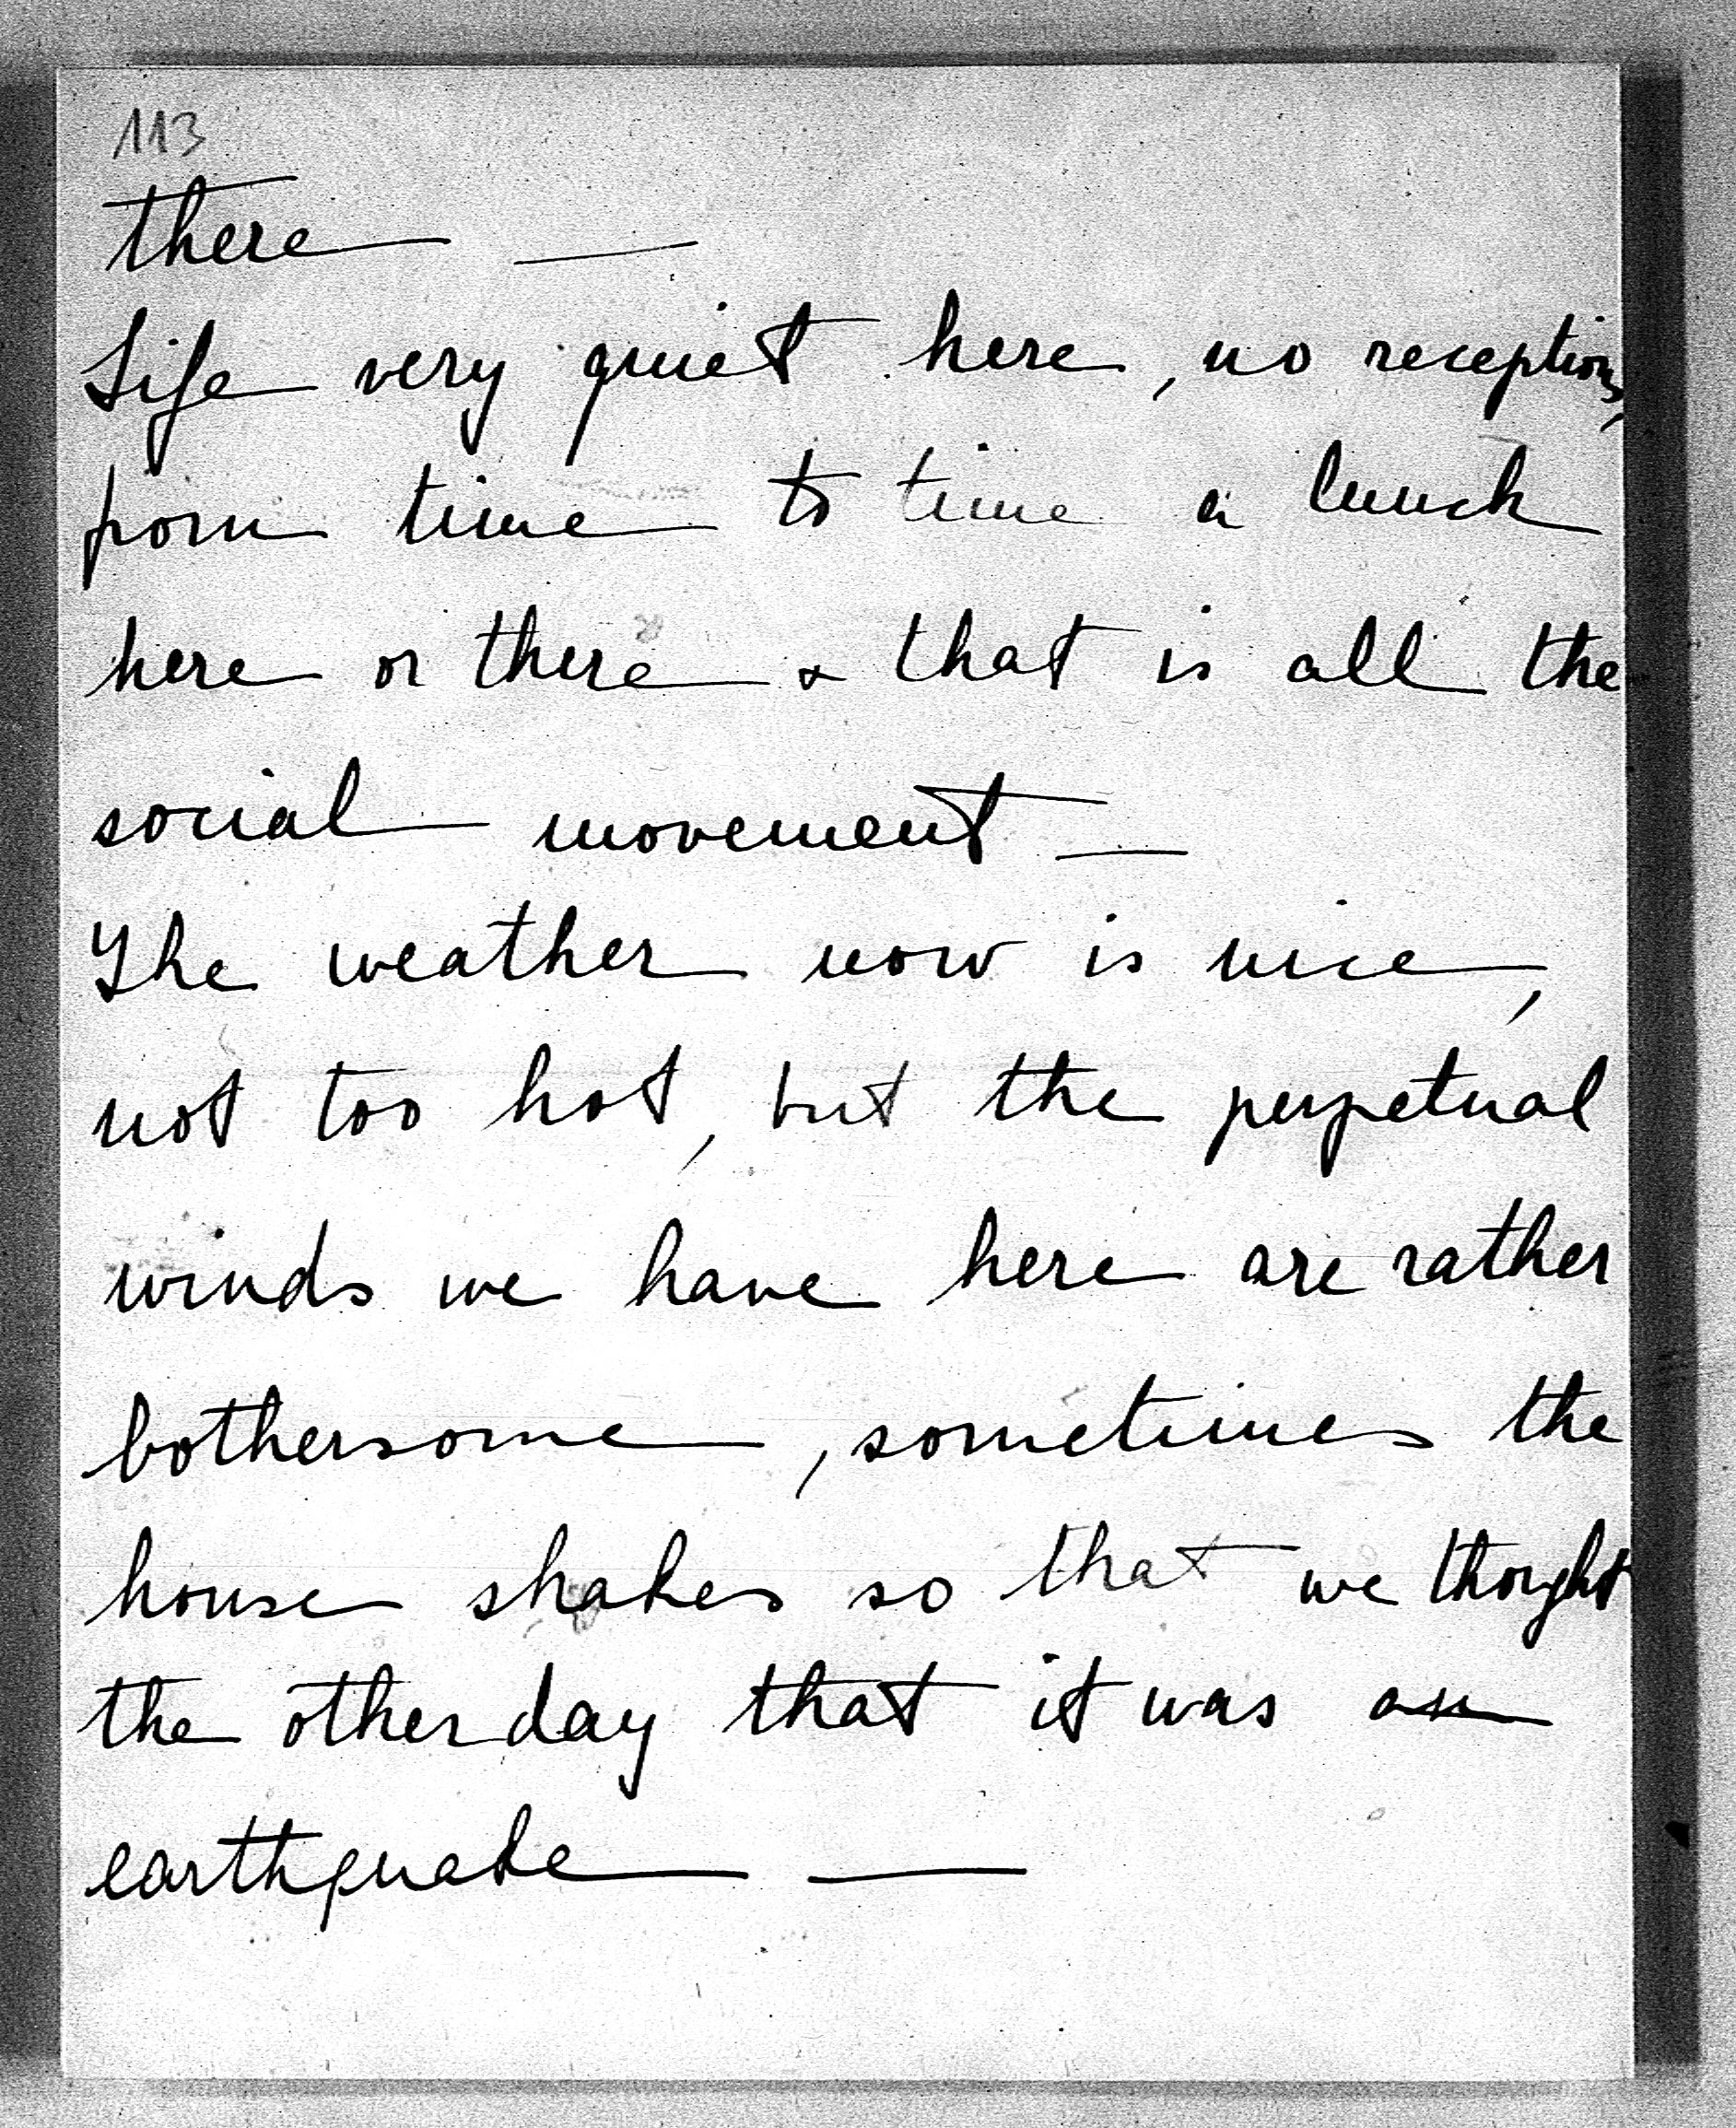 113
there —
Life very quiet here, no receptions,
from time to time a lunch
here or there & that is all the
social movement —
The weather now is nice,
not too hot, but the perpetual
winds we have here are rather
bothersome, sometimes the
house shakes so that we thought
the other day that it was an
earthquake —